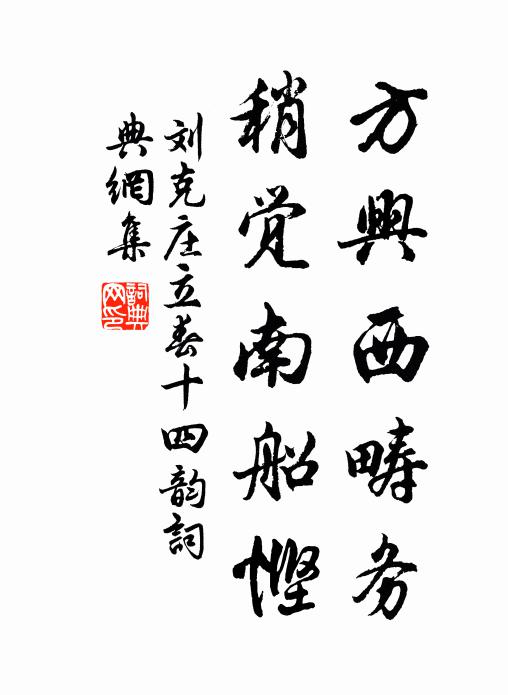 方興西疇务
稍觉南船慳
刘克庄立春十四韵詞
典網集
詞典网印